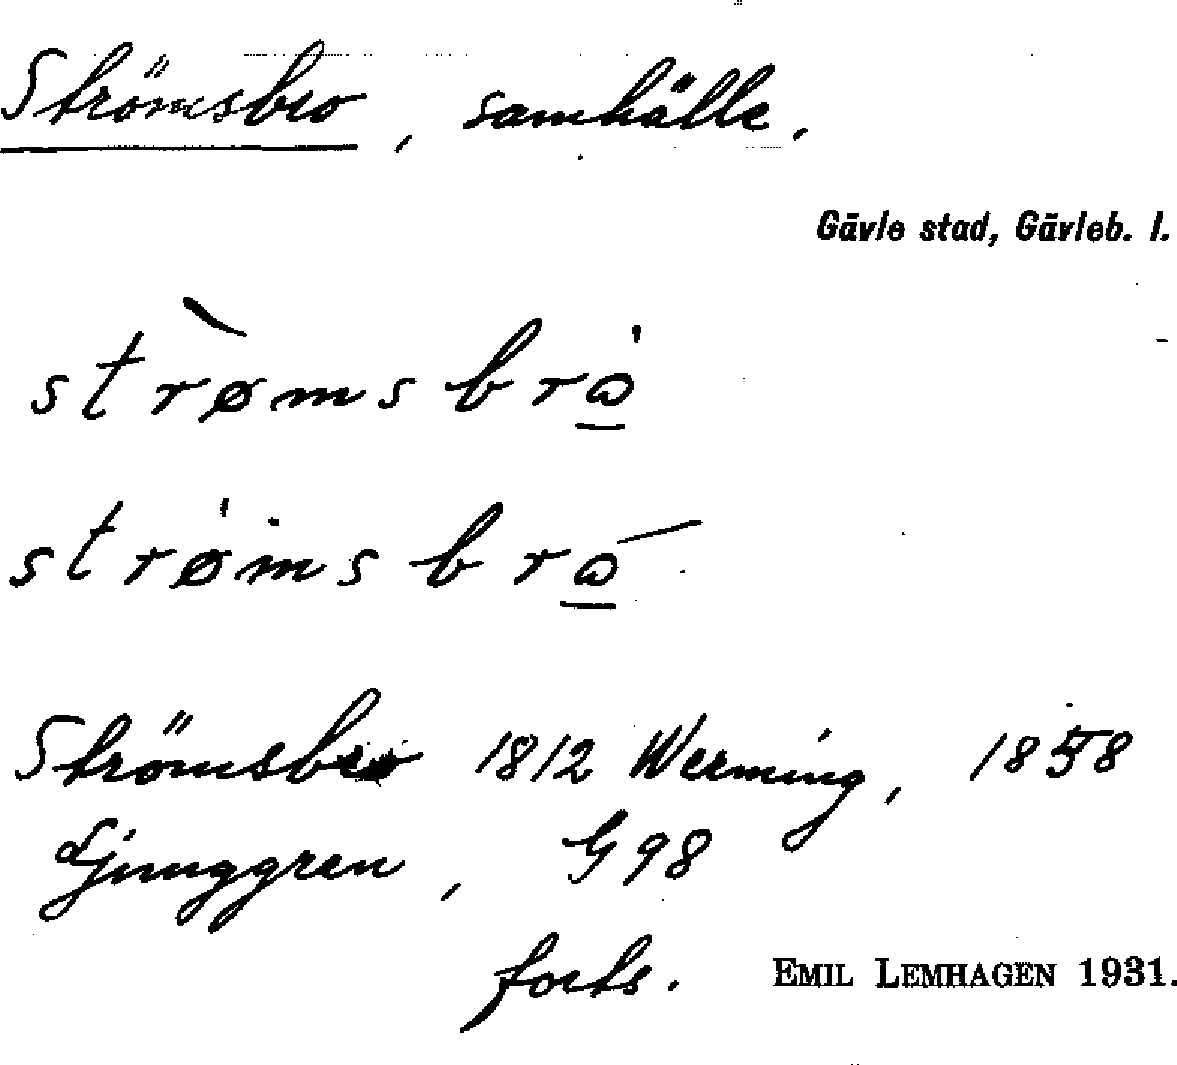 Strömsbro, samhälle,
Gävle stad, Gävleb. l.
strø̀msbrω̲̍
strø̍msbrώ̲
Strömsbro 1812 Werming, 1858
Ljunggren, G98
forts. EMIL LEMHAGEN 1931.